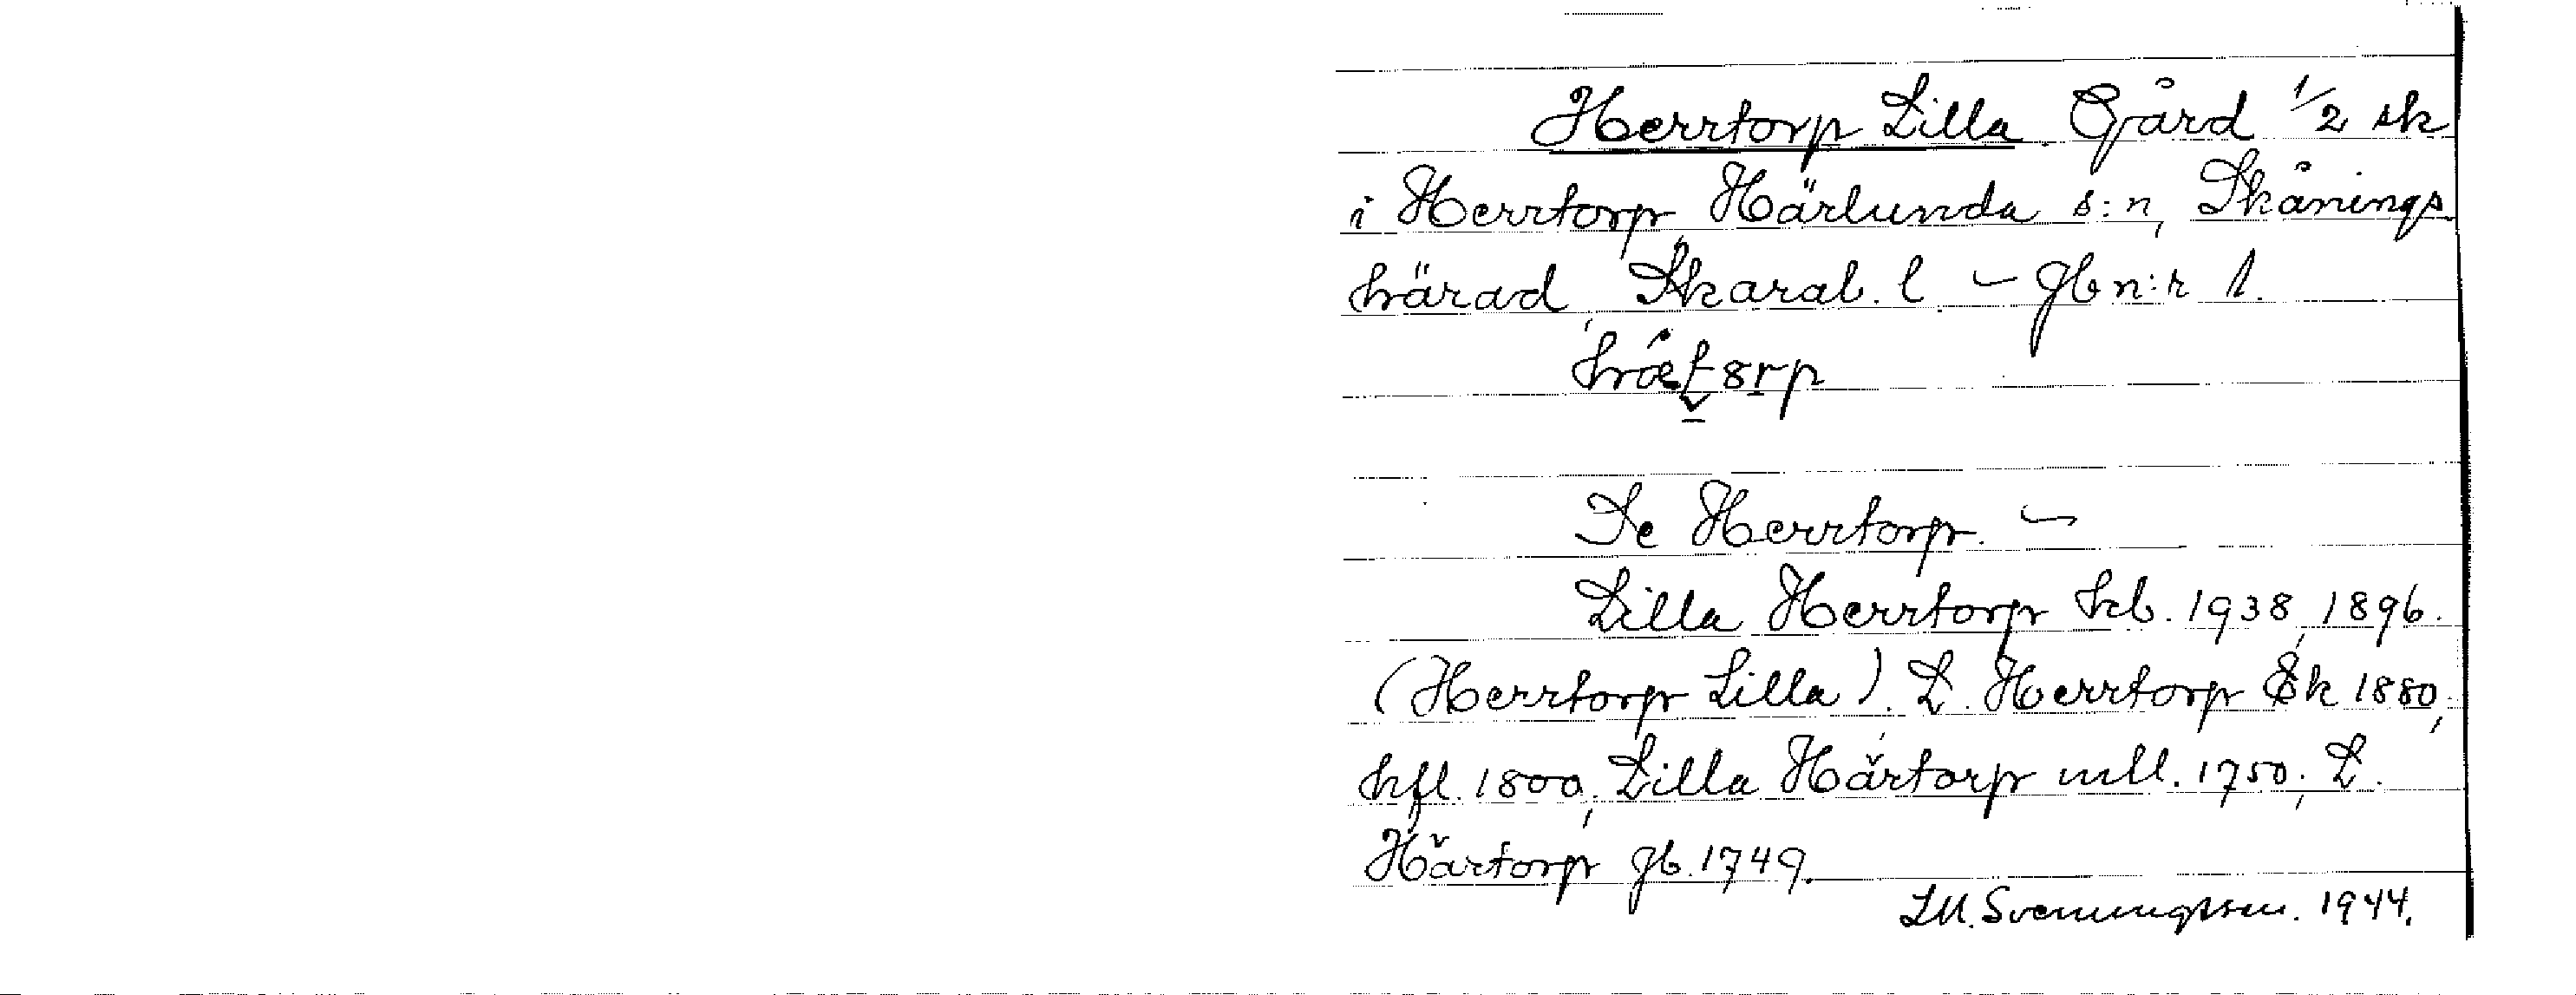 Herrtorp Lilla. Gård 1/2 sk
i Herrtorp, Härlunda s:n, Skånings
härad, Skarab. l. – Jb n:r 1.
Se Herrtorp. –
Lilla Herrtorp kb. 1938, 1896.
(Herrtorp Lilla), L. Herrtorp Ek 1880,
hfl. 1800, Lilla Härtorp mll. 1750; L.
Härtorp Jb. 1749.
LM. Svenungsson. 1944.